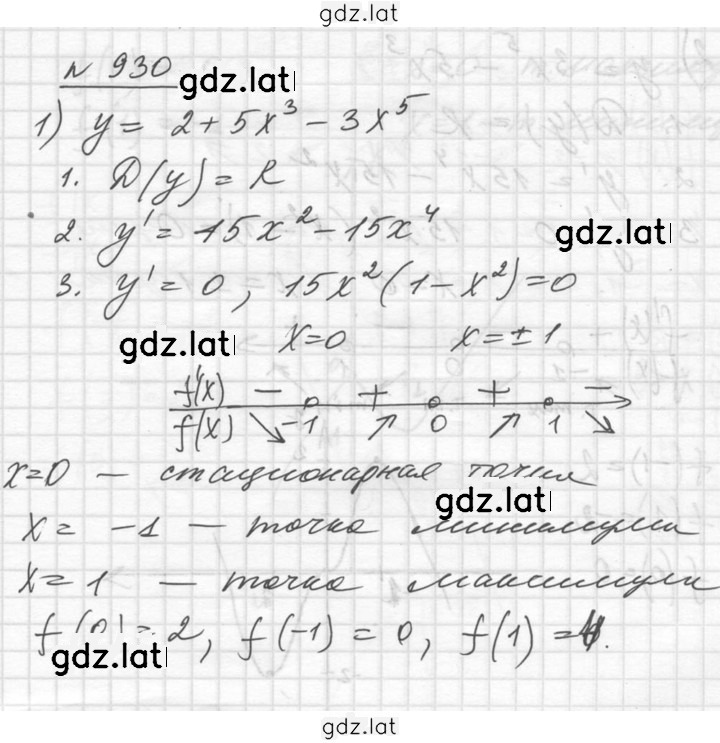 gdz.lat
№ 930
gdz.lat
1) y = 2 + 5x³ − 3x⁵
1. D(y) = R
2. y' = 15x² − 15x⁴
gdz.lat
3. y' = 0, 15x²(1 − x²) = 0
gdz.lat
x = 0 x = ± 1
f'(x) − + + −
f(x) ↘ −1 ↗ 0 ↗ 1 ↘
x = 0 — стационарная точка
gdz.lat
x = −1 — точка минимума
x = 1 — точка максимума
f(0) = 2, f(−1) = 0, f(1) = 4.
gdz.lat
gdz.lat